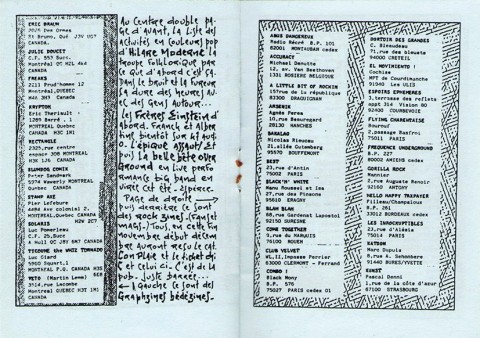 ERIC BRAUN
2025 Des Ormes
CANADA.
JULIE DOUCET
C.P. 553 Succ.
Montréal QC H2L 4K4
CANADA
FREAKS
2211 Prud'homme 12
Montréal, QUEBEC
H4A 3H3 Canada
KRYPTON
Eric Theriault
MONTREAL Québec
CANADA H3C 1R1
RECTANGLE
2325, rue centre
espace 308 MONTREAL
H3K 1J6 CANADA
BLUMDOG COMIX
Peter Sandmark
5974 Waverly MONTREAL
Québec, CANADA
STAMP AXE
Pier Lefebure
MONTREAL, Québec CANADA
SOLARIS
Luc Pomerleau
C.P. 25, Succ
A Hull QC J8Y 6M7 CANADA
YVONNE the WHIZ TORNADO
Luc Giard
MONTREAL P.Q. CANADA
VETO (Martin Lemm)
3514, rue Lacombe
Montréal QUEBEC H3T 1M1
CANADA
Au Centre double pa-
ge d'avant, la liste des
activités en couleurs pop
d'Hilare Moderne la
troupe folklorique par
ce que d'abord c'est ça.
Dans le bruit et la fureur
sa dure des heures, Av-
ec des Gens Autour...
Les Frères Einstein d'
abord, Franck et Alber
tine bientôt sur le Auto
. L'épique assaut, Et
puis la belle bête Over
Ground en live perfo
rmance big band en
virée cet été - espèrce.
Page de droite
puis derrière ce sont
des Rock zines (fanz et
mags). Tous, en cette fin
novembre début décem
bre auront reçu le cat.
Con Plate et le Lichet dij
C et celui-ci. C'est de la
pub. Juste banale...
← à Gauche ce sont des
Graphzines bédézines-
ABUS DANGEREUX
Radio Récré B.P. 101
82001 MONTAUBAN cedex
ACCURACY
Michael Denutte
12, av. Van Beethoven
1331 ROSIERE BELGIQUE
A LITTLE BIT OF ROCKIN
15 rue de la république
83300 DRAGUIGNAN
ARSENIK
Agnès Perea
10, rue Beauregard
28130 HANCHES
BARALAG
Nicolas Rimoux
21, allée Gutenberg
95570 BOUFFEMONT
BEST
23, rue d'Antin
75002 PARIS
BLACK'N' WHITE
Manu Roussel et Iss
27, rue des Pinsons
95610 ERAGNY
BLAH BLAH
68, rue Gardenat Lapostol
92150 SURESNE
COME TOGETHER
9, rue du MARQUIS
76100 ROUEN
CLUB VELVET
WL, 11, Impasse Perrier
63000 CLERMONT - Ferrand
COMBO !
Black Mony
B.P. 576
75027 PARIS cedex 01
DORTOIR DES GRANDES
C. Rieaudeau
71, rue des bleuets
94000 CRETEIL
EL MOVIMIENTO !
Cochise
MPT de Courdimanche
91940 Les ULIS
ESPRITS EPHEMERES
3, terrasse des reflets
appt 314 Vision 80
92400 COURBEVOIE
FLYING CHARENTAISE
Houreuf
2, passage Rasfrou
75011 PARIS
FREQUENCE UNDERGROUND
B.P. 227
80002 AMIENS cedex
GORILLA ROCK
Mannier
2, rue Auguste Renoir
92160 ANTONY
HELLO HAPPY TAXPAYER
Filleau/Champaloux
B.P. 261
33012 BORDEAUX cedex
LES INROCKUPTIBLES
23, rue d'Alésia
75014 PARIS
KATSON
Marc Dupuia
8, av. A. Schoenberg
91440 BURES/YVETTE
KUNST
Pascal Denni
1, rue de la côte d'azur
67100 STRASBOURG